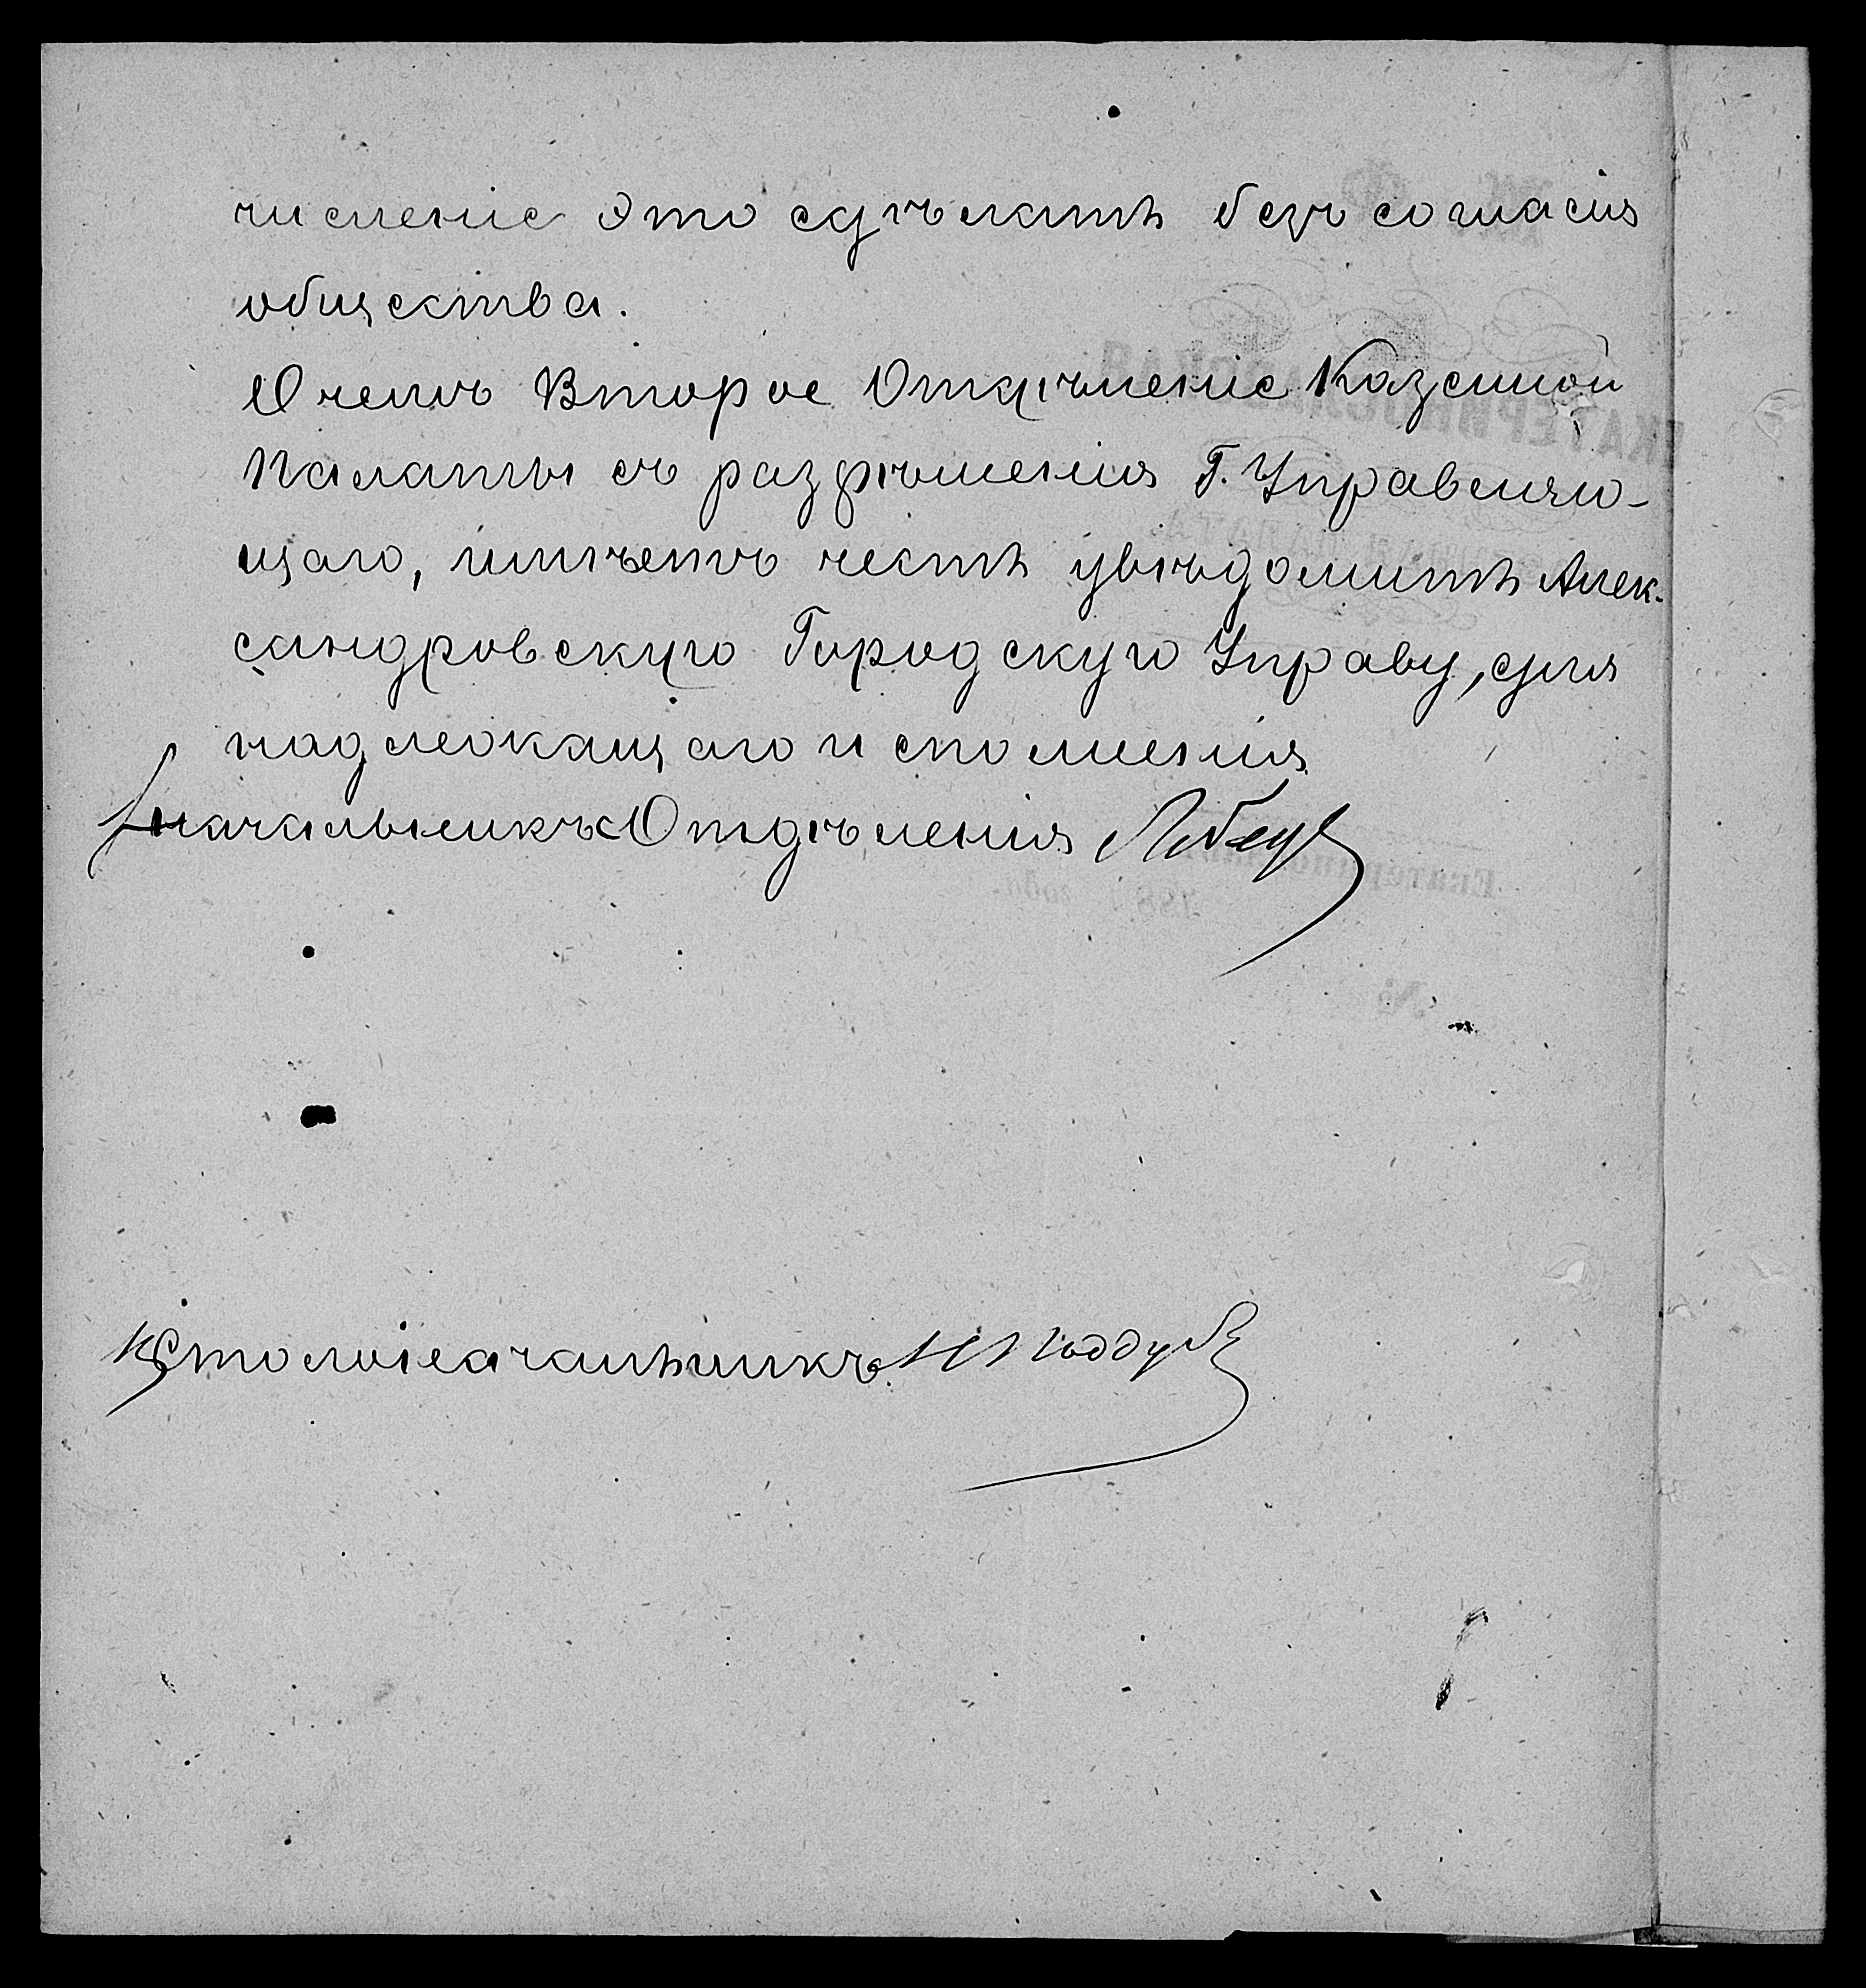 численіе это сдѣлать безъ согласія
общества.
О чемъ Второе Отдѣленіе Казенной
Палаты съ разрѣшенія Г. Управляю-
щаго, имѣетъ честь увѣдомить Алек-
сандровскую Городскую Управу, для
надлежащаго исполненія
Начальникъ Отдѣленія
Столоначальникъ